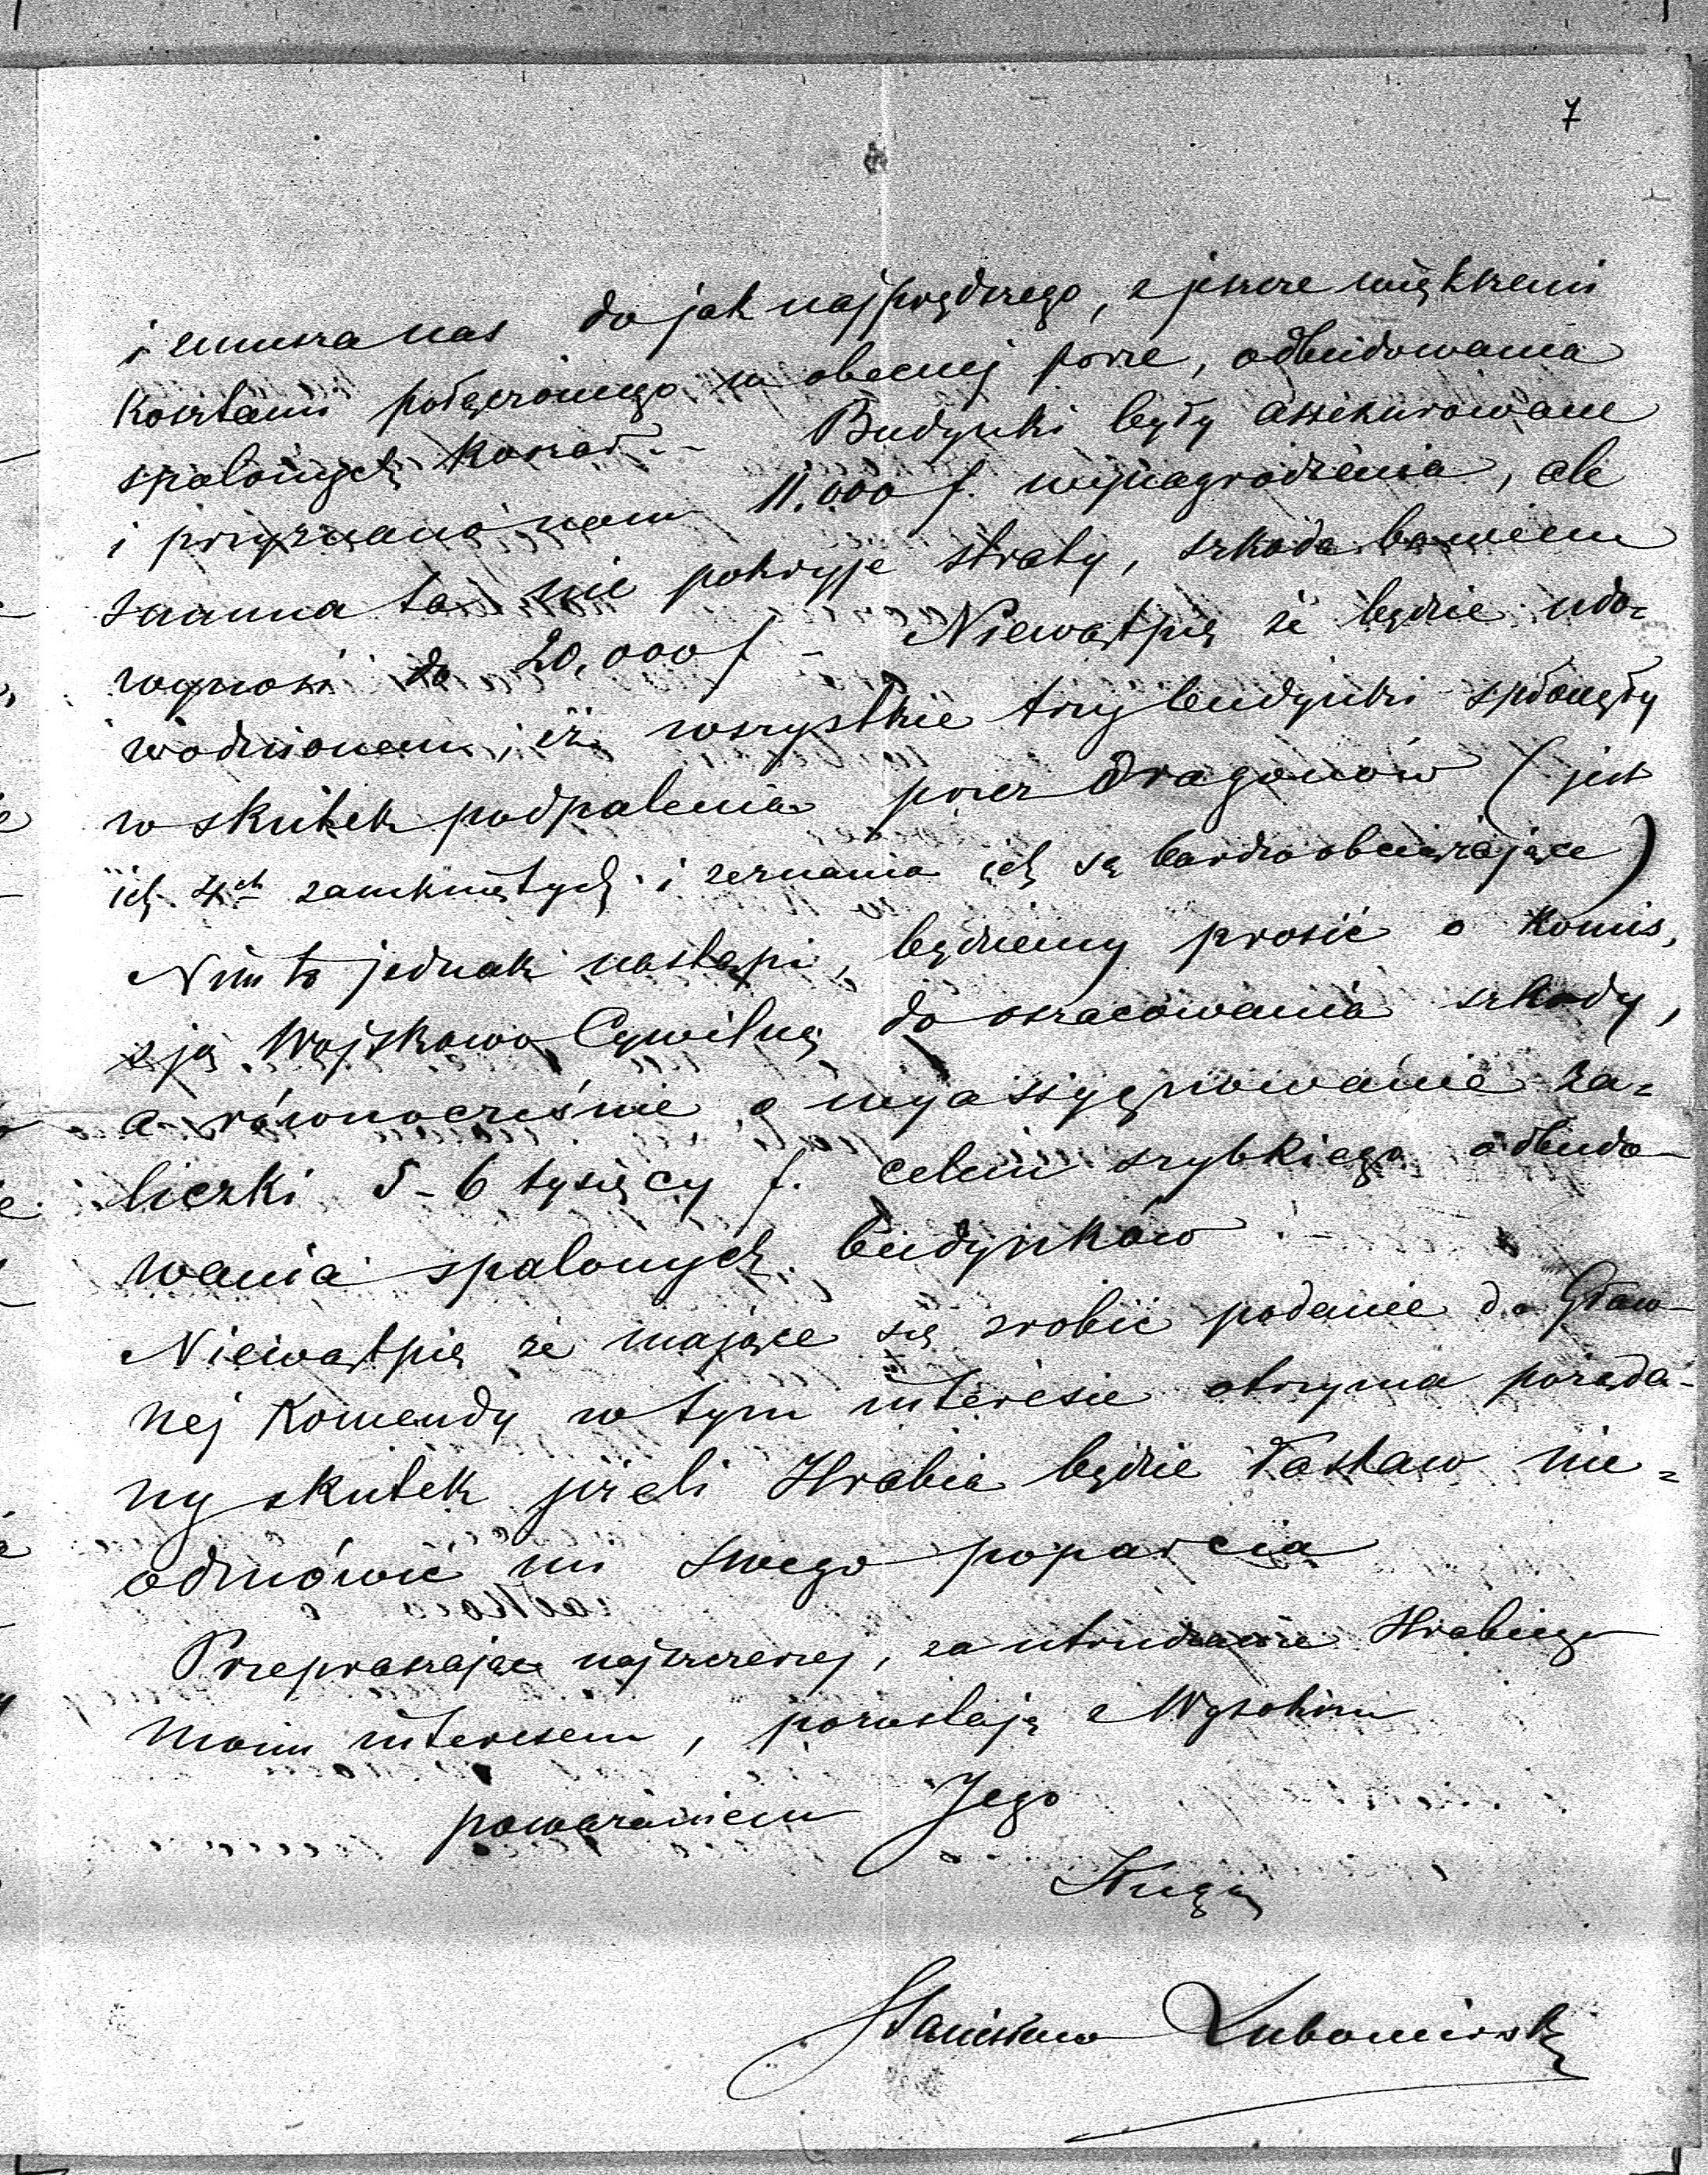 7
i zmusza nas do jak najprędszego, z jeszcze większemi
kosztami połączonego w obecnej porze, odbudowania
spalonych koszar. – Budynki były assekurowane
i przyznano nam 11.000 f. wynagrodzenia, ale
summa ta nie pokryje straty, szkoda bowiem
wynosi do 20,000 f – Niewątpię że będzie udo=
wodnionem, iż wszystkie trzy budynki spłonęły
w skutek podpalenia przez Dragonów (jest
ich 4ch zamkniętych i zeznania ich są bardzo obciążające)
Nim to jednak nastąpi, będziemy prosić o Komis,
zją Wojskowo Cywilną do oszacowania szkody,
a równocześnie o wyassygnowanie za=
liczki 5-6 tysięcy f. celem szybkiego odbudo-
wania spalonych budynków.
Niewątpię że mające się zrobić podanie do Głów-
nej Komendy w tym interesie otrzyma pożąda-
ny skutek jeżeli Hrabia będzie łaskaw nie=
odmówić mi swego poparcia
Przepraszając najszczerzej, za utrudzanie Hrabiego
moim interesem, pozostaję z Wysokim
poważaniem Jego
Sługą
Stanisław Lubomirski